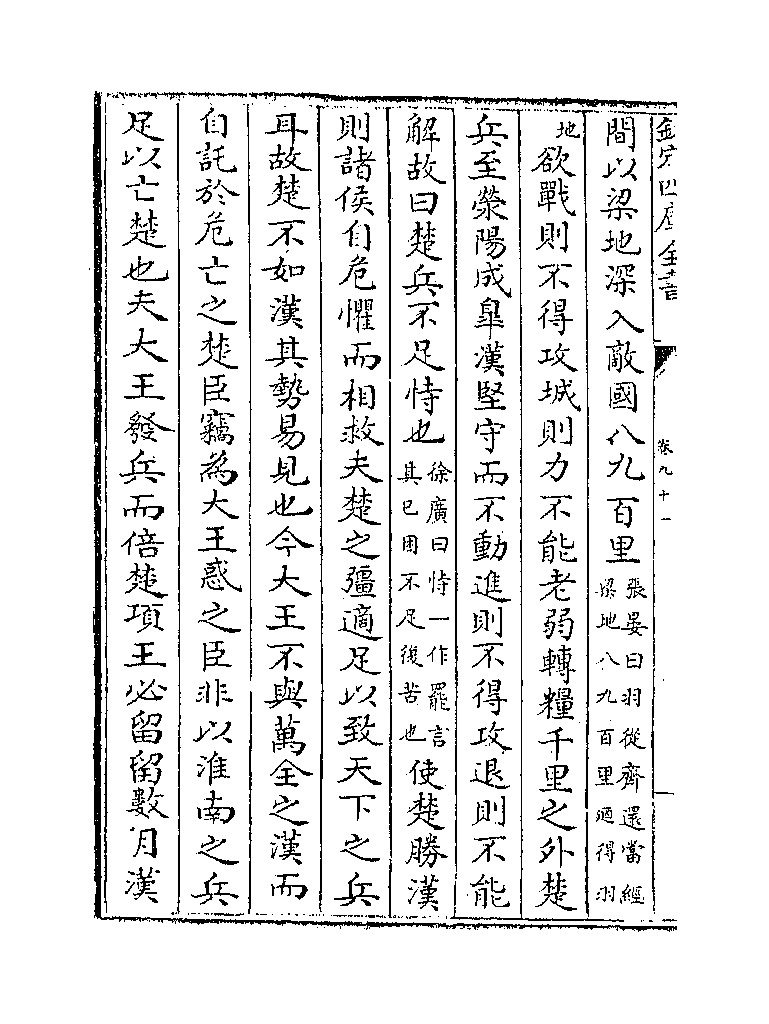 欽定四庫全書
卷九十一
間以梁地深入敵國八九百里張晏曰羽從齊還當經梁地八九百里廼得羽
地欲戰則不得攻城則力不能老弱轉糧千里之外楚
兵至滎陽成皐漢堅守而不動進則不得攻退則不能
解故曰楚兵不足恃也徐廣曰恃一作罷言其已困不足復苦也使楚勝漢
則諸侯自危懼而相救夫楚之彊適足以致天下之兵
耳故楚不如漢其勢易見也今大王不與萬全之漢而
自託於危亡之楚臣竊為大王惑之臣非以淮南之兵
足以亡楚也夫大王發兵而倍楚項王必留留數月漢